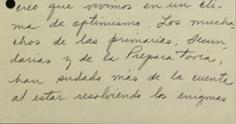 creo que vivimos en un cli-
ma de optimismo. Los mucha-
chos de las primarias, Secun-
darias y de la Preparatoria,
han sudado más de la cuenta
al estar resolviendo los enigmas